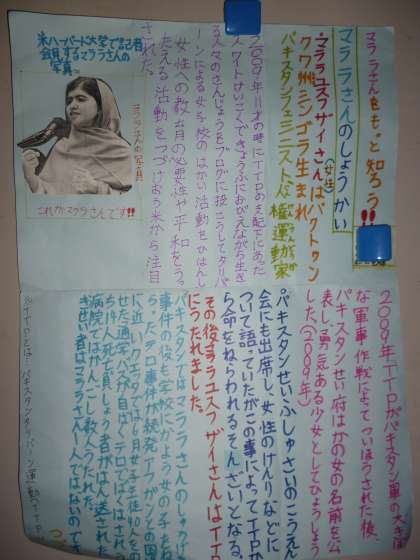 マララさんをもっと知ろう!!
マララさんのしょうかい
(女性)
・マララユスフザイさんはパクトゥン
クワ州ミンゴラ生まれ
パキスタンフェミニスト人権運動家
2009年11才の時にTTPの支配下にあった
スワトけいこくできょうふにおびえながら生き
る人々のさんじょうをブログに投こうしてタリバ
ーンによる女子校のはかい活動をひはんし
女性への教育の必要性や平和をうっ
たえる活動をつづけおう米から注目
された。
米ハーバード大学で記者
会見するマララさんの
写真
マララさんの写真
これがマララさんです!!
2009年TTPがパキスタン軍の大きぼ
な軍事作戦によってついほうされた後、
パキスタンせい府はかの女の名前を公
表し「勇気ある少女」としてひょうしょう
した。(2009年)
パキスタンせいふしゅさいのこうえん
会にも出席し、女性のけんりなどに
ついて語っていたがこの事によってTTPか
ら命をねらわれるそんざいとなる。
その後マララユスフザイさんはTTP
にうたれました。
パキスタンではマララさんのしゅうげき
事件の後も学校にかよう女の子をねら
ったテロ事件が続発アフガンとの国
に近いクエッタでは6月女子生徒40人の
せた通学バスが自ばくテロでばくはされ
ち14人死亡負しょう者がはん送された
病院ではかんごし数人うたれた。
ぎせい者はマララさん一人ではないのです
※TTPとは…パキスタンイタリバーン運動(TTP)